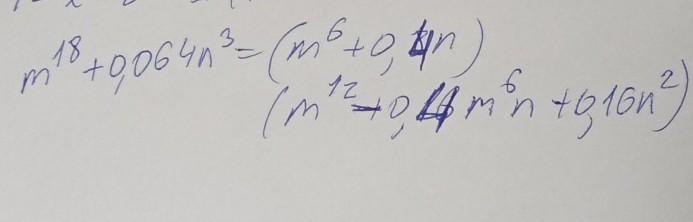 m¹⁸+0,064n³=(m⁶+0,4n)
(m¹²-0,4m⁶n+0,16n²)